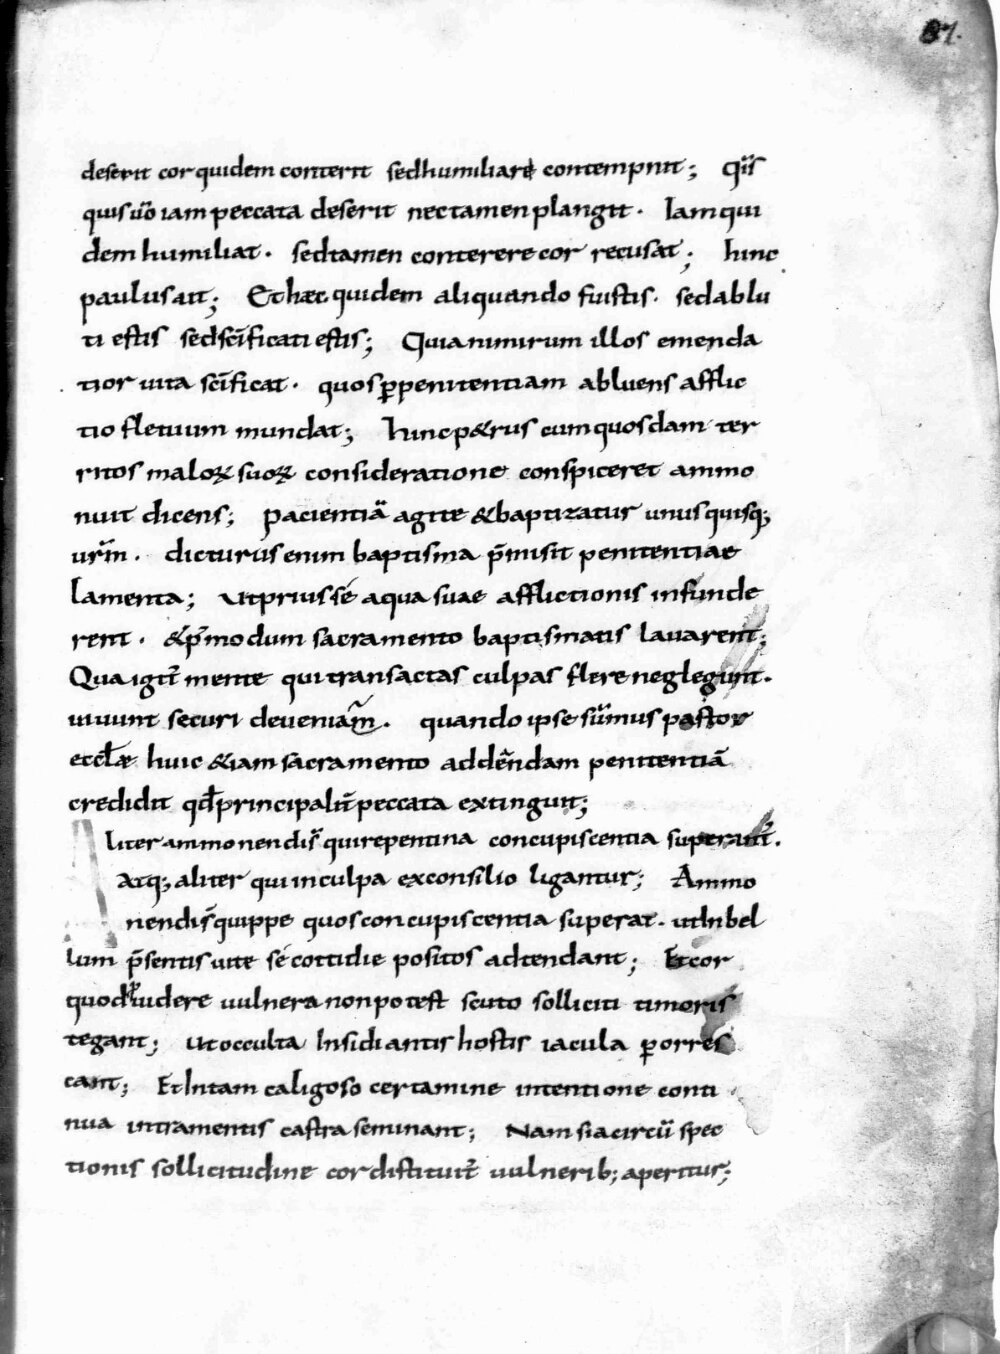 87.
deserit cor quidem conterit sed humiliare contempnit; Qịs
quis ũo iam peccata deserit nec tamen plangit. Iam qui
dem humiliat. sed tamen conterere cor recusat; hinc
paulus ait; Et hæc quidem aliquando fuistis. sed ablu
ti estis sed scīficati estis; Quia nimirum illos emenda
tior uita scīficat. quos ꝑ penitentiam abluens afflic
tio fletuum mundat; hinc p&rus cum quosdam ter
ritos maloꝝ suoꝝ consideratione conspiceret ammo
nuit dicens; Pacientiā agite & baptizatur unusquisq;
urm̄. dicturus enim baptisma p̄misit penitentiae
lamenta; Ut prius sé aqua suae afflictionis infunde
rent. & p̄modum sacramento baptismatis lavarent;
Qua igit̄ mente qui transactas culpas flere neglegunt.
uiuunt securi de ueniam̄. quando ipse sūmus pastor
eccl̄æ huic &iam sacramento addēndam penitentiā
credidit qđ principalit̄ peccata extinguit;
Aliter ammonendi s̄ qui repentina concupiscentia superant̄.
Atq; aliter qui in culpa ex consilio ligantur; Ammo
nendi s̄ quippe quos concupiscentia superat. ut In bel
lum p̄sentis uite sé cottidie positos adtendant; Et cor
quod uidere uulnera non potest scuto solliciti timoris
tegant; Ut occulta Insidiantis hostis iacula ꝑorres
cant; Et In tam caligoso certamine intentione conti
nua intra mentis castra se minant; Nam si a circū spec
tionis sollicitudine cor distituit̄ uulnerib; aperitur;